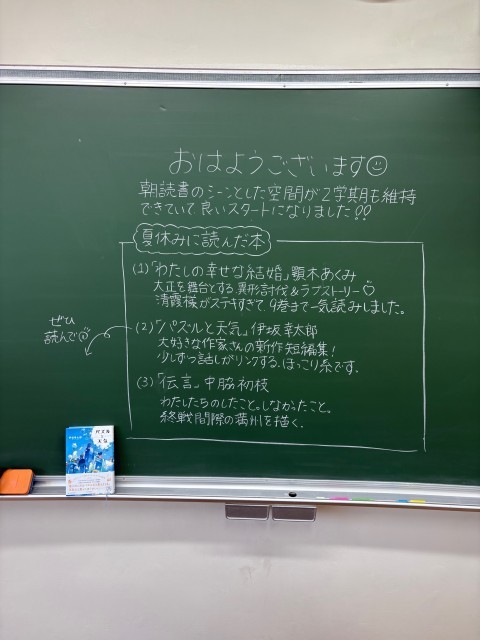 おはようございます☺
朝読書のシーンとした空間が2学期も維持
できていて良いスタートになりました!!
夏休みに読んだ本
(1)「わたしの幸せな結婚」顎木あくみ
大正を舞台とする、異形討伐&ラブストーリー♡
清霞様がステキすぎて、9巻まで一気読みしました。
ぜひ
読んで☺
(2)「パズルと天気」伊坂幸太郎
大好きな作家さんの新作短編集!
少しずつ話しがリンクする、ほっこり系です。
(3)「伝言」中脇初枝
わたしたちのしたこと。しなかったこと。
終戦間際の満州を描く。
パズル
と
天気